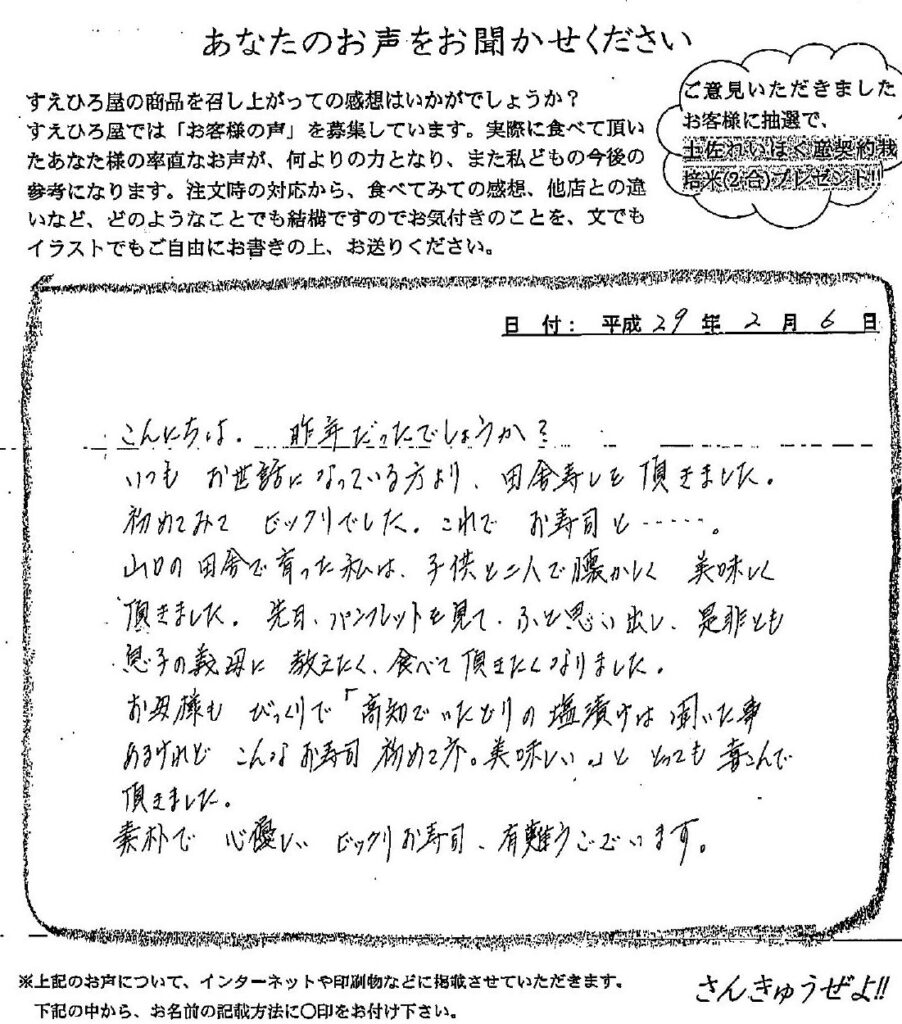 あなたのお声をお聞かせください
すえひろ屋の商品を召し上がっての感想はいかがでしょうか？
すえひろ屋では「お客様の声」を募集しています。実際に食べて頂い
たあなた様の率直なお声が、何よりの力となり、また私どもの今後の
参考になります。注文時の対応から、食べてみての感想、他店との違
いなど、どのようなことでも結構ですのでお気付きのことを、文でも
イラストでもご自由にお書きの上、お送りください。
ご意見いただきました
お客様に抽選で、
土佐れいほく産契約栽
培米(2合)プレゼント!!
日 付： 平成 29 年 2 月 6 日
こんにちは。 昨年だったでしょうか？
いつも お世話になっている方より、田舎寿しを頂きました。
初めてみて ビックリでした。これで お寿司と……。
山口の田舎で育った私は、子供と二人で懐かしく 美味しく
頂きました。先日、パンフレットを見て、ふと思い出し、是非とも
息子の義母に 教えたく、食べて頂きたくなりました。
お母様も びっくりで「高知でいたどりの塩漬けは聞いた事
あるけれど こんなお寿司 初めて。美味しい。」と とっても 喜こんで
頂きました。
素朴で 心優しい ビックリお寿司、有難うございます。
※上記のお声について、インターネットや印刷物などに掲載させていただきます。
下記の中から、お名前の記載方法に〇印をお付け下さい。
さんきゅうぜよ!!